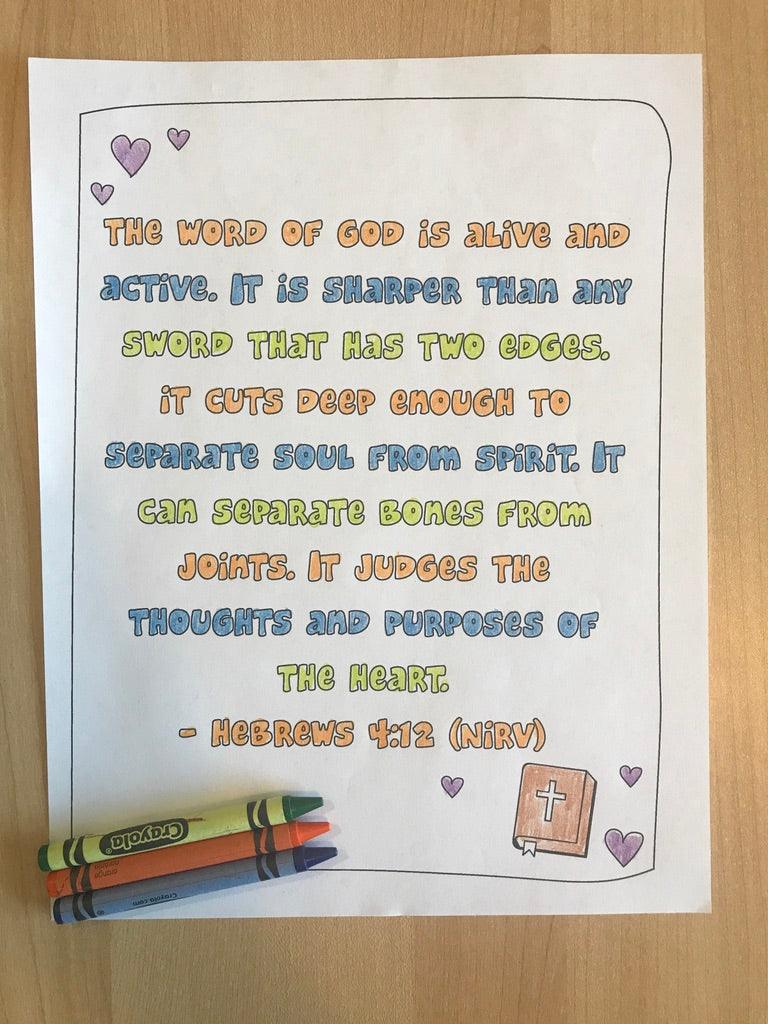 THE WORD OF GOD IS ALIVE AND
ACTIVE. IT IS SHARPER THAN ANY
SWORD THAT HAS TWO EDGES.
IT CUTS DEEP ENOUGH TO
SEPARATE SOUL FROM SPIRIT. IT
CAN SEPARATE BONES FROM
JOINTS. IT JUDGES THE
THOUGHTS AND PURPOSES OF
THE HEART.
- HEBREWS 4:12 (NIRV)
Crayola®
orange
Crayola.com